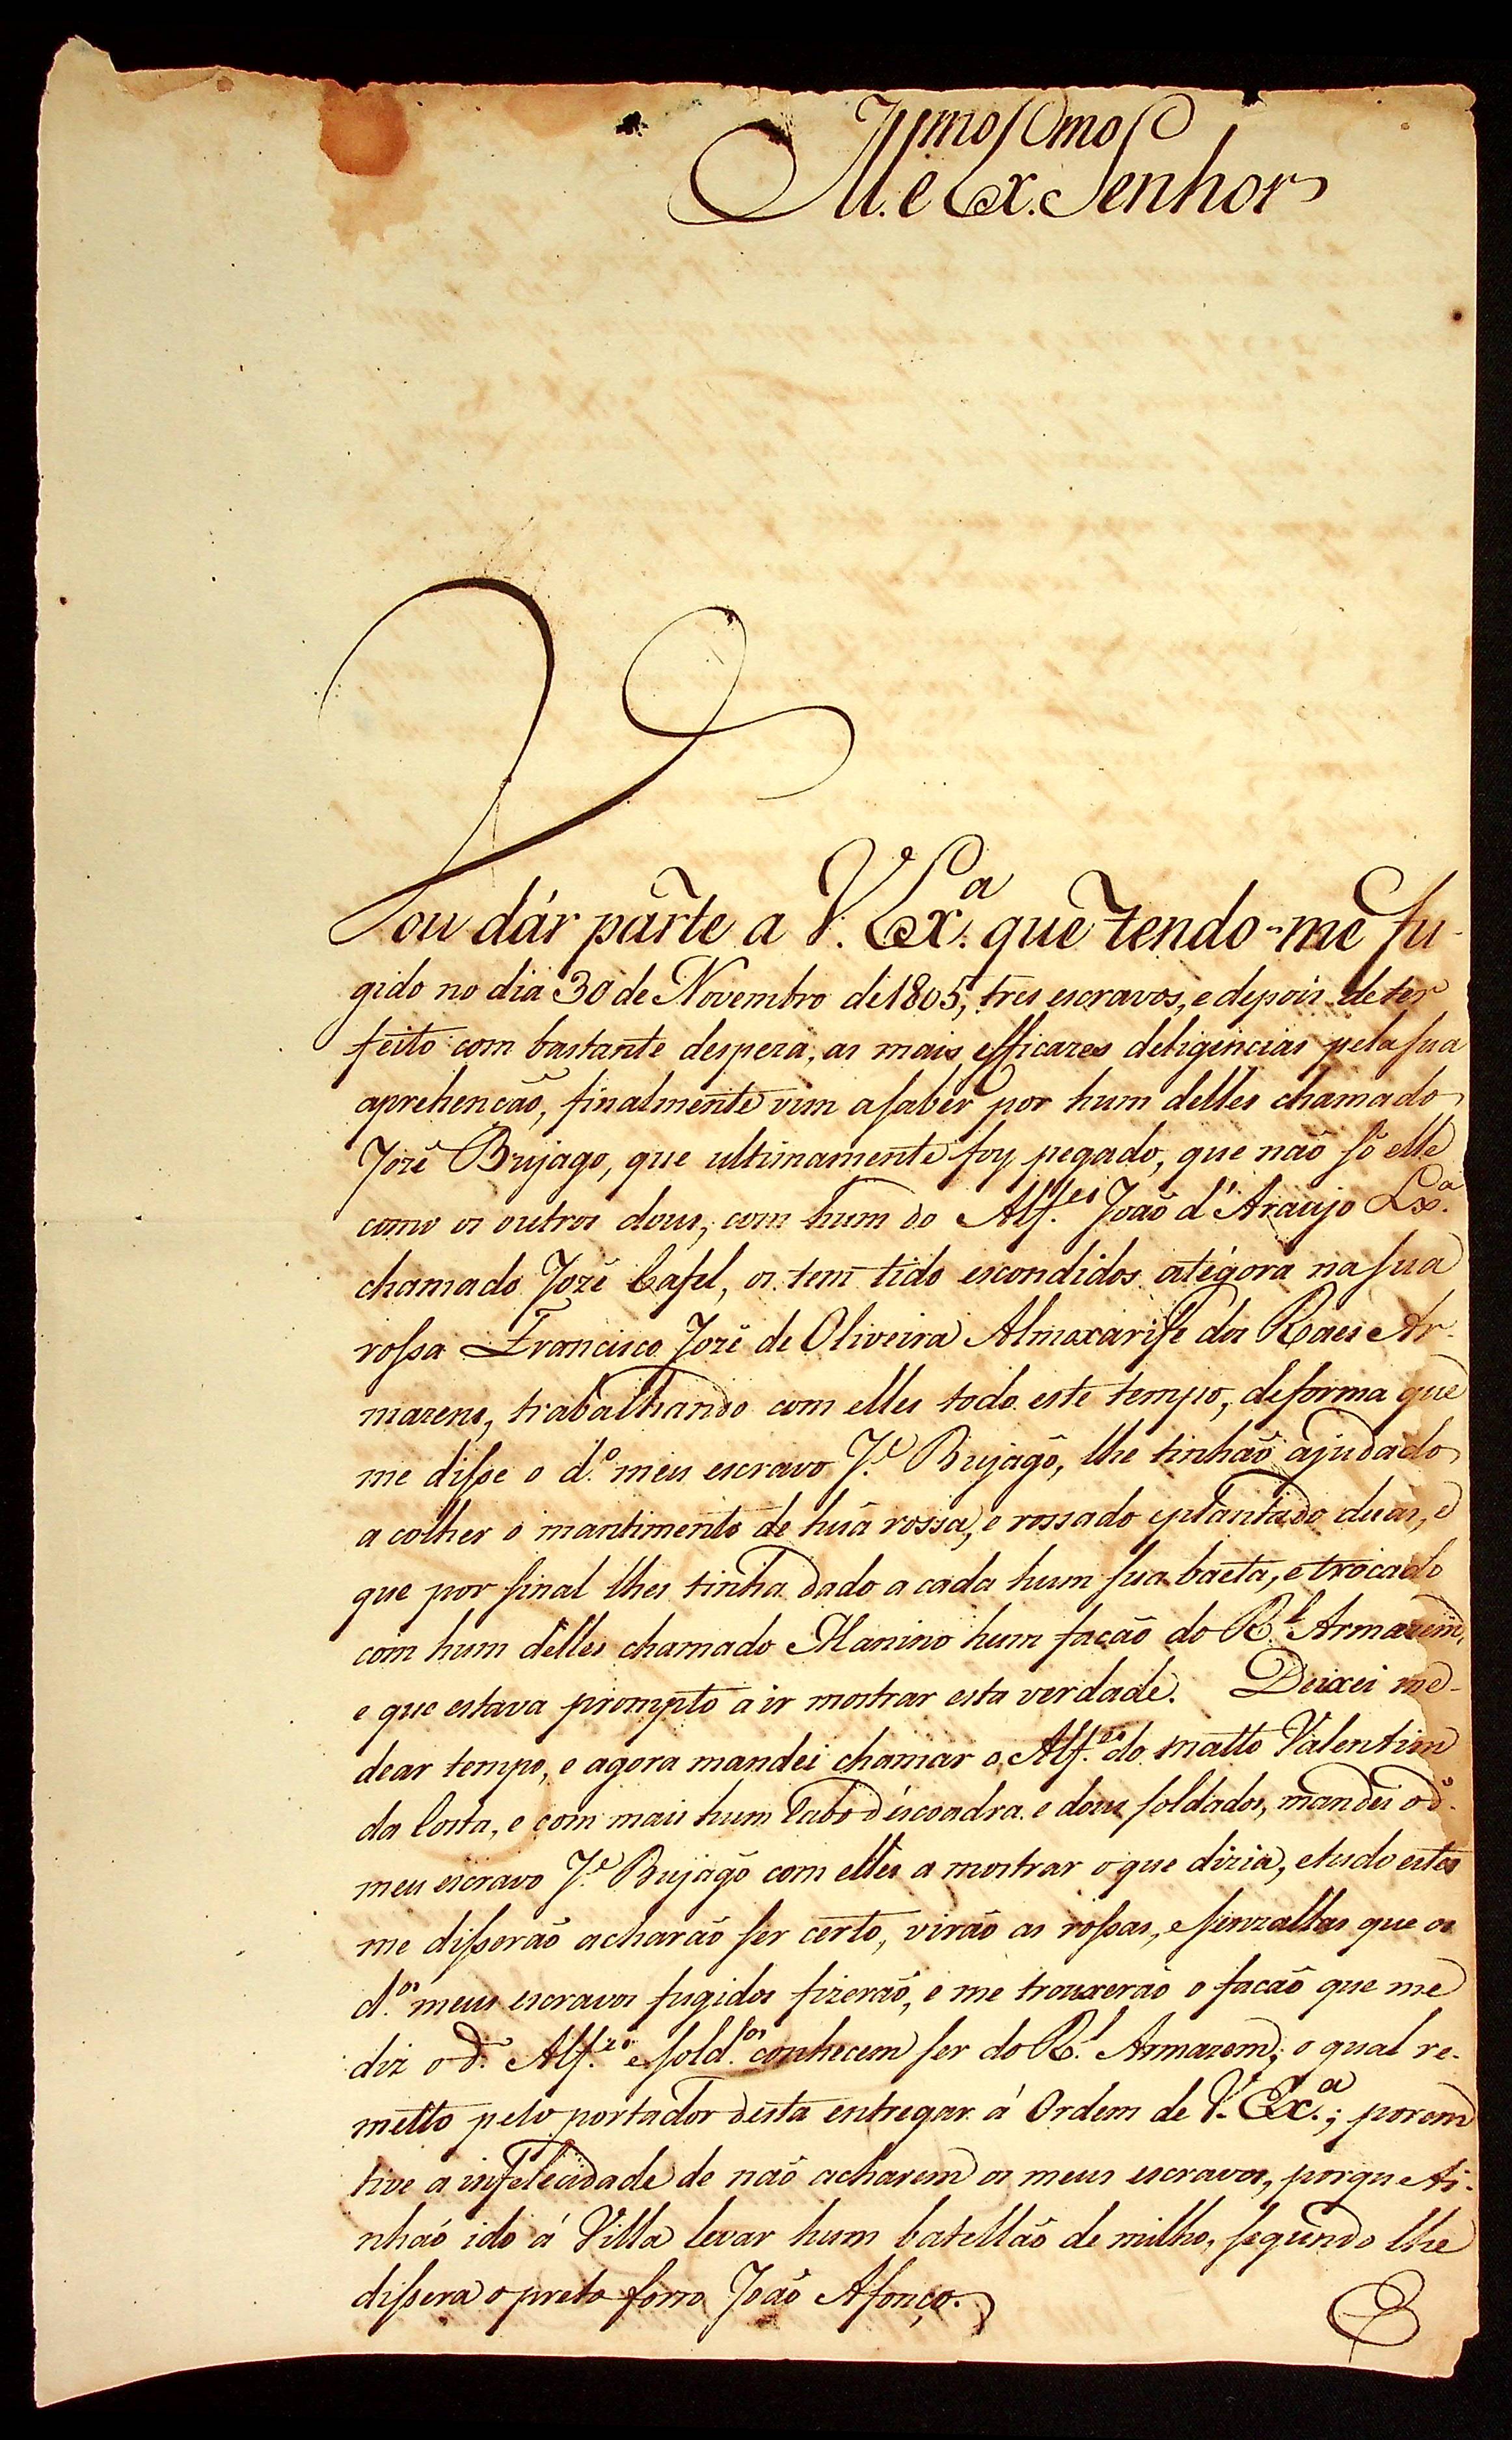 Ill.mo e Ex.mo Senhor
Vou dár parte a V. Ex.a que tendo-me fu-
gido no dia 30 de Novembro de 1805, tres escravos, e depois de ter
feito com bastante despeza, as mais efficazes deligencias pela sua
aprehencão, finalmente vim a saber por hum delles chamado
Jozé Bujago, que ultimamente foy pegado, que não só elle
como os outros dous, com hum do Alf.es João d'Araujo Lx.a
chamado Jozé Cafel, os tem tido escondidos atégora na sua
rossa Francisco Jozé de Oliveira Almoxarife dos Raes Ar-
mazens, trabalhando com elles todo este tempo, de forma que
me disse o d.o meu escravo J.e Bujagó, lhe tinhão ajudado
a colher o mantimento de huã rossa, e rossado e plantado duas, e
que por sinal lhes tinha dado a cada hum sua baeta, e trocado
com hum delles chamado Manino hum facão do R.l Armazem,
e que estava prompto a ir mostrar esta verdade. Deixei me-
dear tempo, e agora mandei chamar o Alf.es do matto Valentim
da Costa, e com mais hum Cabo d'escoadra e dous soldados, mandei o d.o
meu escravo J.e Bujagó com elles a mostrar o que dizia, e tudo estes
me disserão acharão ser certo, virão as rossas, e senzallas que os
d.os meus escravos fugidos fizerão, e me trouxerão o facão que me
diz o d.o Alf.es e sold.os conhecem ser do R.l Armazem; o qual re-
metto pelo portador desta entregar á Ordem de V. Ex.a; porem
tive a infelicidade de não acharem os meus escravos, porque ti-
nhão ido á Villa levar hum batellão de milho, segundo lhe
dissera o preto forro João Afonço.
E